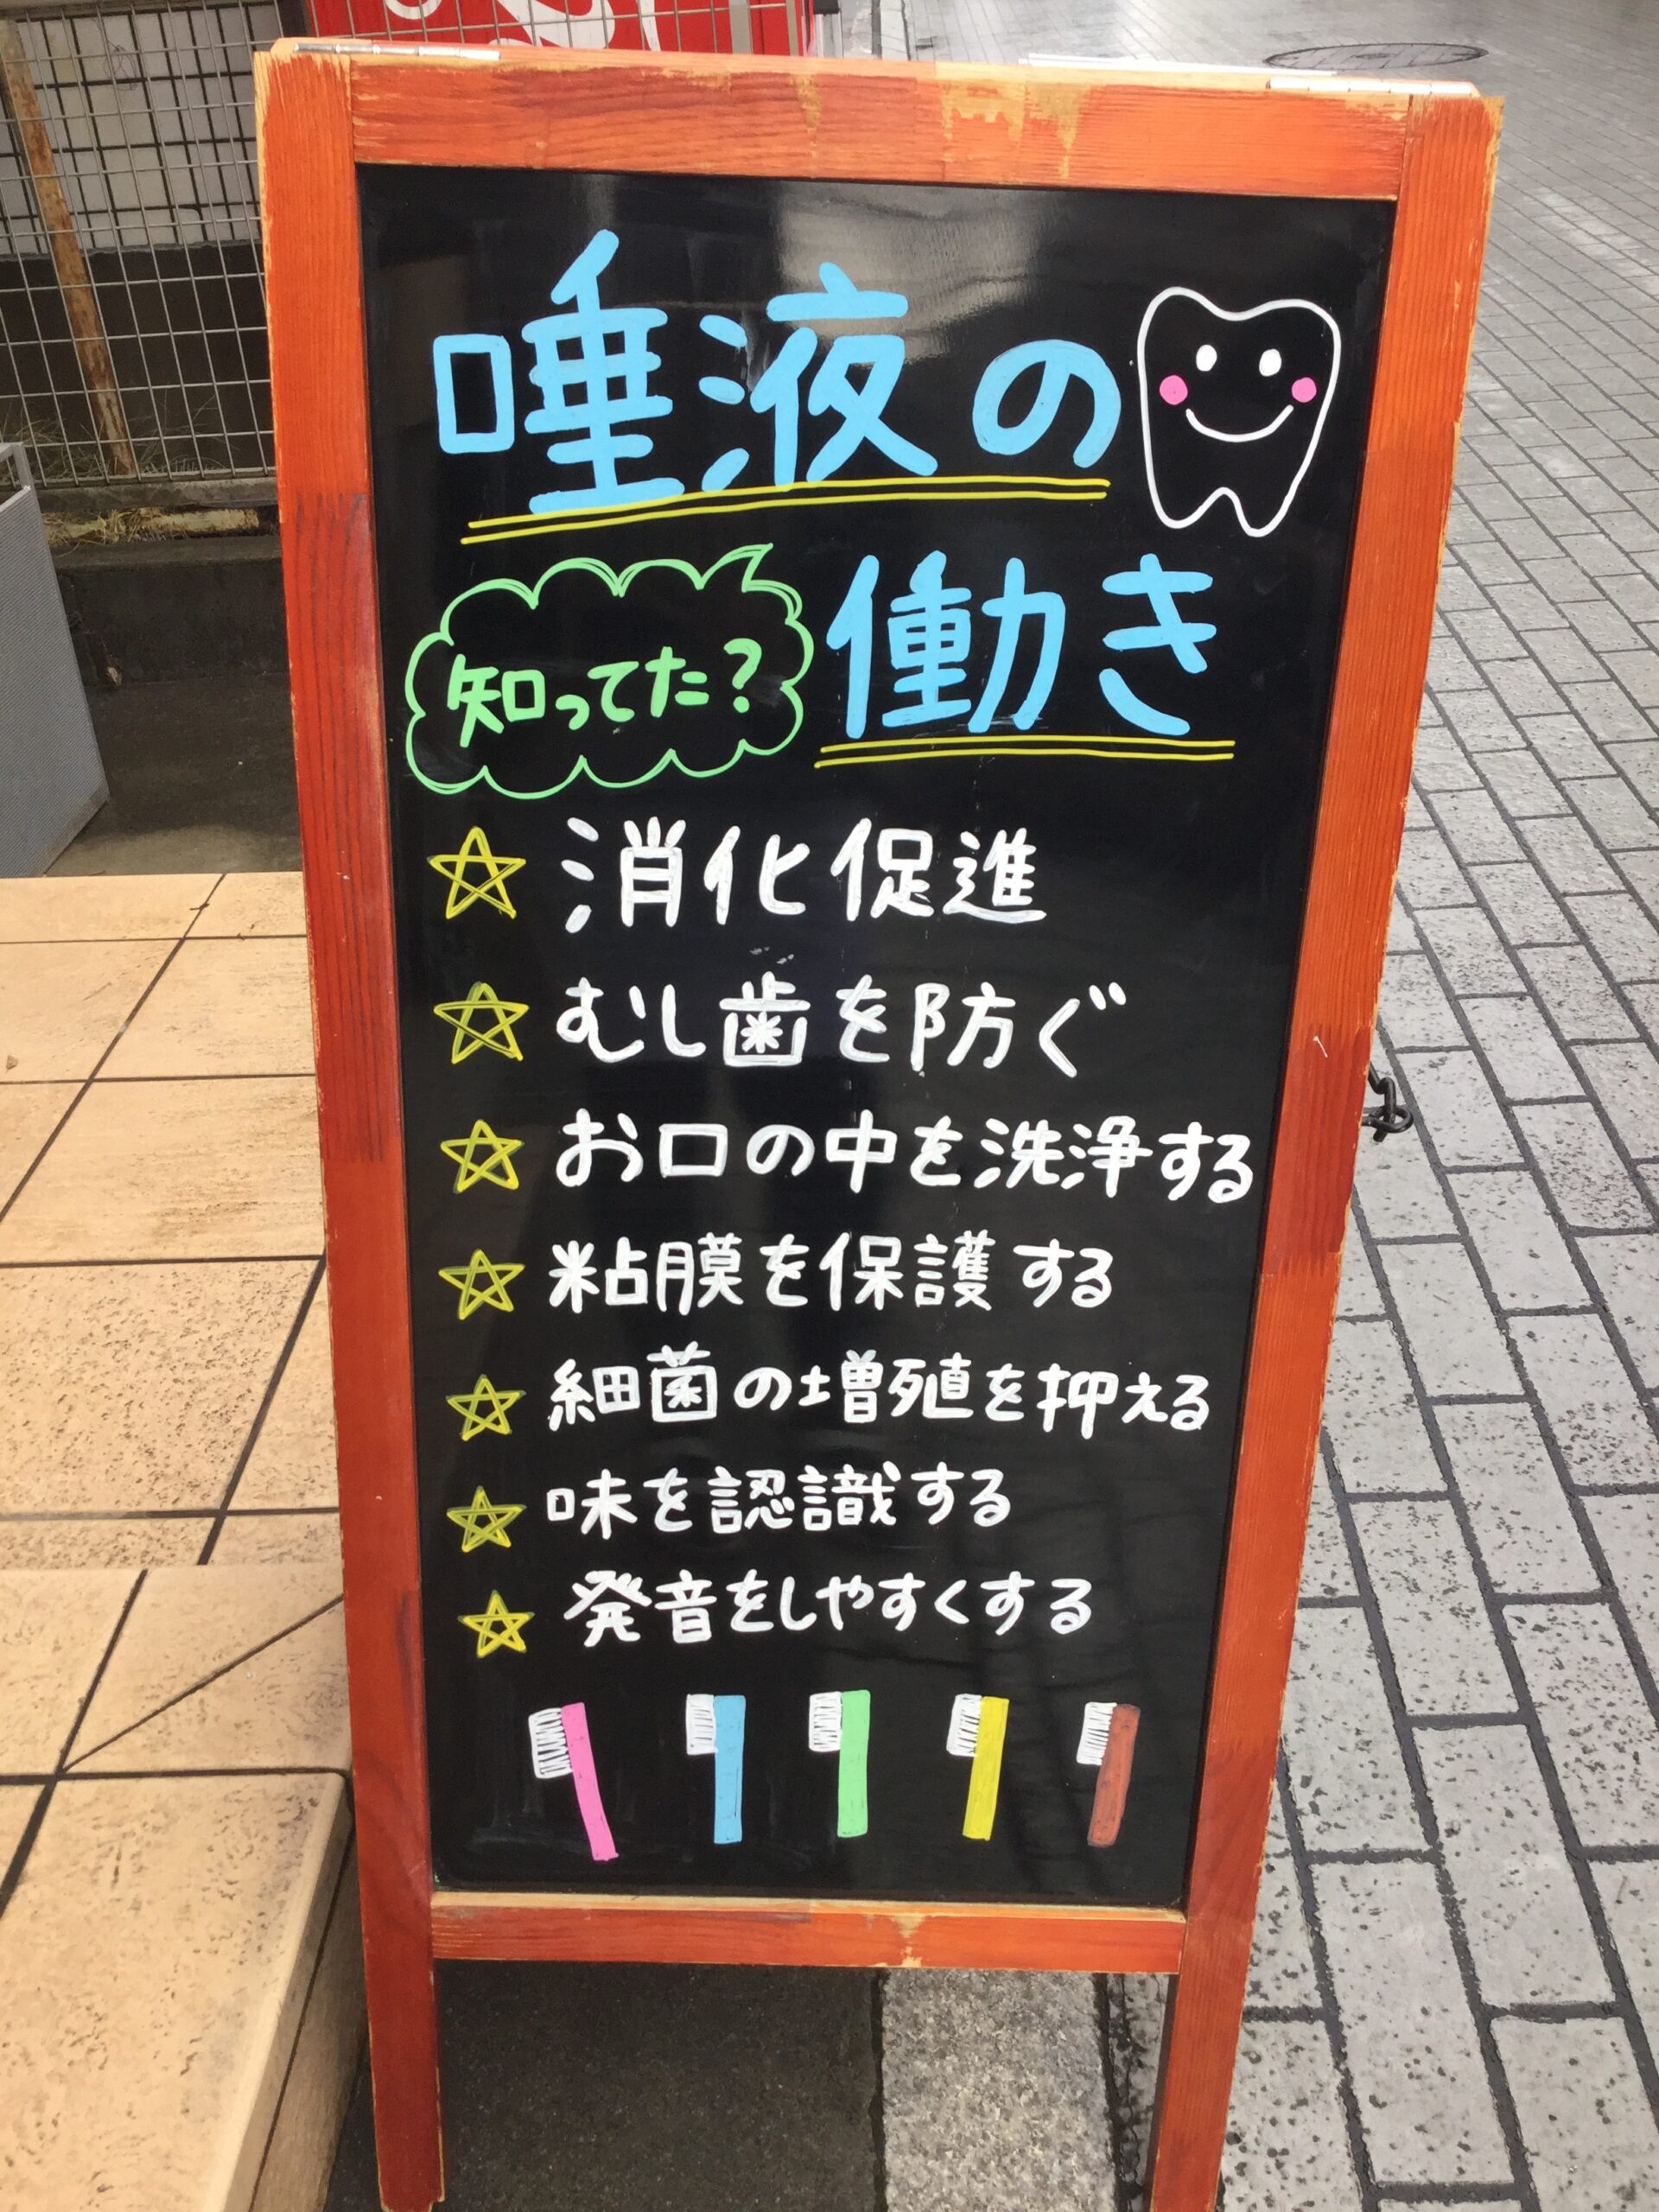 唾液の
知ってた?
働き
消化促進
むし歯を防ぐ
お口の中を洗浄する
粘膜を保護する
細菌の増殖を抑える
味を認識する
発音をしやすくする